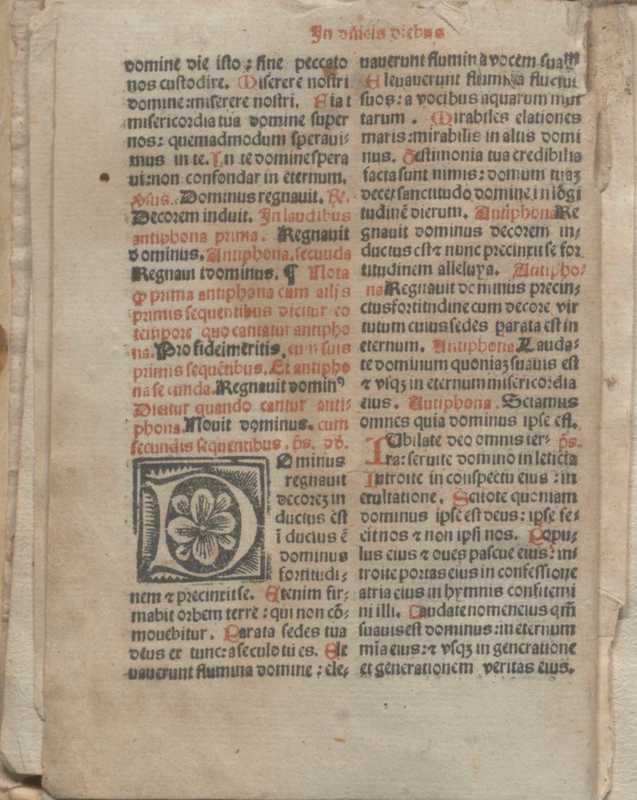 In dñicis diebus
domine die isto : sine peccato
nos custodire. Miserere nostri
domine:miserere nostri. Fiat
misericordia tua domine super
nos: quemadmodum speraui-
mus in te. In te domine spera
ui:non confondar in eternum.
Dominus regnauit.
Decorem induit. In laudibus
antiphona prima. Regnauit
dominus. Antiphona. secunda
Regnauit dominus. ¶ Nota
ꝙ prima antiphona cum alijs
primis sequentibus dicitur eo
tempore quo cantatur antipho
na. Pro fidei meritis. cum suis
primis sequẽtibus. Et antipho
na secunda. Regnauit dominꝰ
Dicitur quando cantur anti-
phona. Nouit dominus. cum
secundis sequentibus. p̃s. dd̃.
Dominus
regnauit
decorez in
ductus est
ĩ dutus ẽ
dominus
fortitudi-
nem ⁊ precinxit se. Etenim fir-
mabit orbem terre : qui non cõ-
mouebitur. Parata sedes tua
deus ex tunc:a seculo tu es. Ele
uauerunt flumina domine : ele-
uauerunt flumina vocem suam
Eleuauerunt flumina fluctus
suos: a vocibus aquarum mul
tarum . Mirabiles elationes
maris:mirabilis in altis domi
nus. Testimonia tua credibilia
facta sunt nimis: domum tuaz
decet sanctitudo domine in lõgi
tudinẽ dierum. Antiphona Re
gnauit dominus decorem in-
ductus est ⁊ nunc precinxit se for
titudinem alleluya. Antipho-
na Regnauit dominus precin-
ctus fortitudine cum decore vir
tutum cuius sedes parata est in
eternum. Antiphona. Lauda-
te dominum quoniaz suauis est
⁊ vsqz in eternum misericordia
eius. Antiphona. Sciamus
omnes quia dominus ipse est.
Iubilate deo omnis ter- p̃s.
ra: seruite domino in leticia
Introite in conspectu eius : in
exultatione. Scitote quoniam
dominus ipse est deus: ipse fe-
cit nos ⁊ non ipsi nos. Popu-
lus eius ⁊ oues pascue eius: in-
troite portas eius in confessione
atria eius in hymnis confitemi
ni illi. Laudate nomen eius qm̃
suauis est dominus: in eternum
mĩa eius: ⁊ vsqz in generatione
et generationem veritas eius.